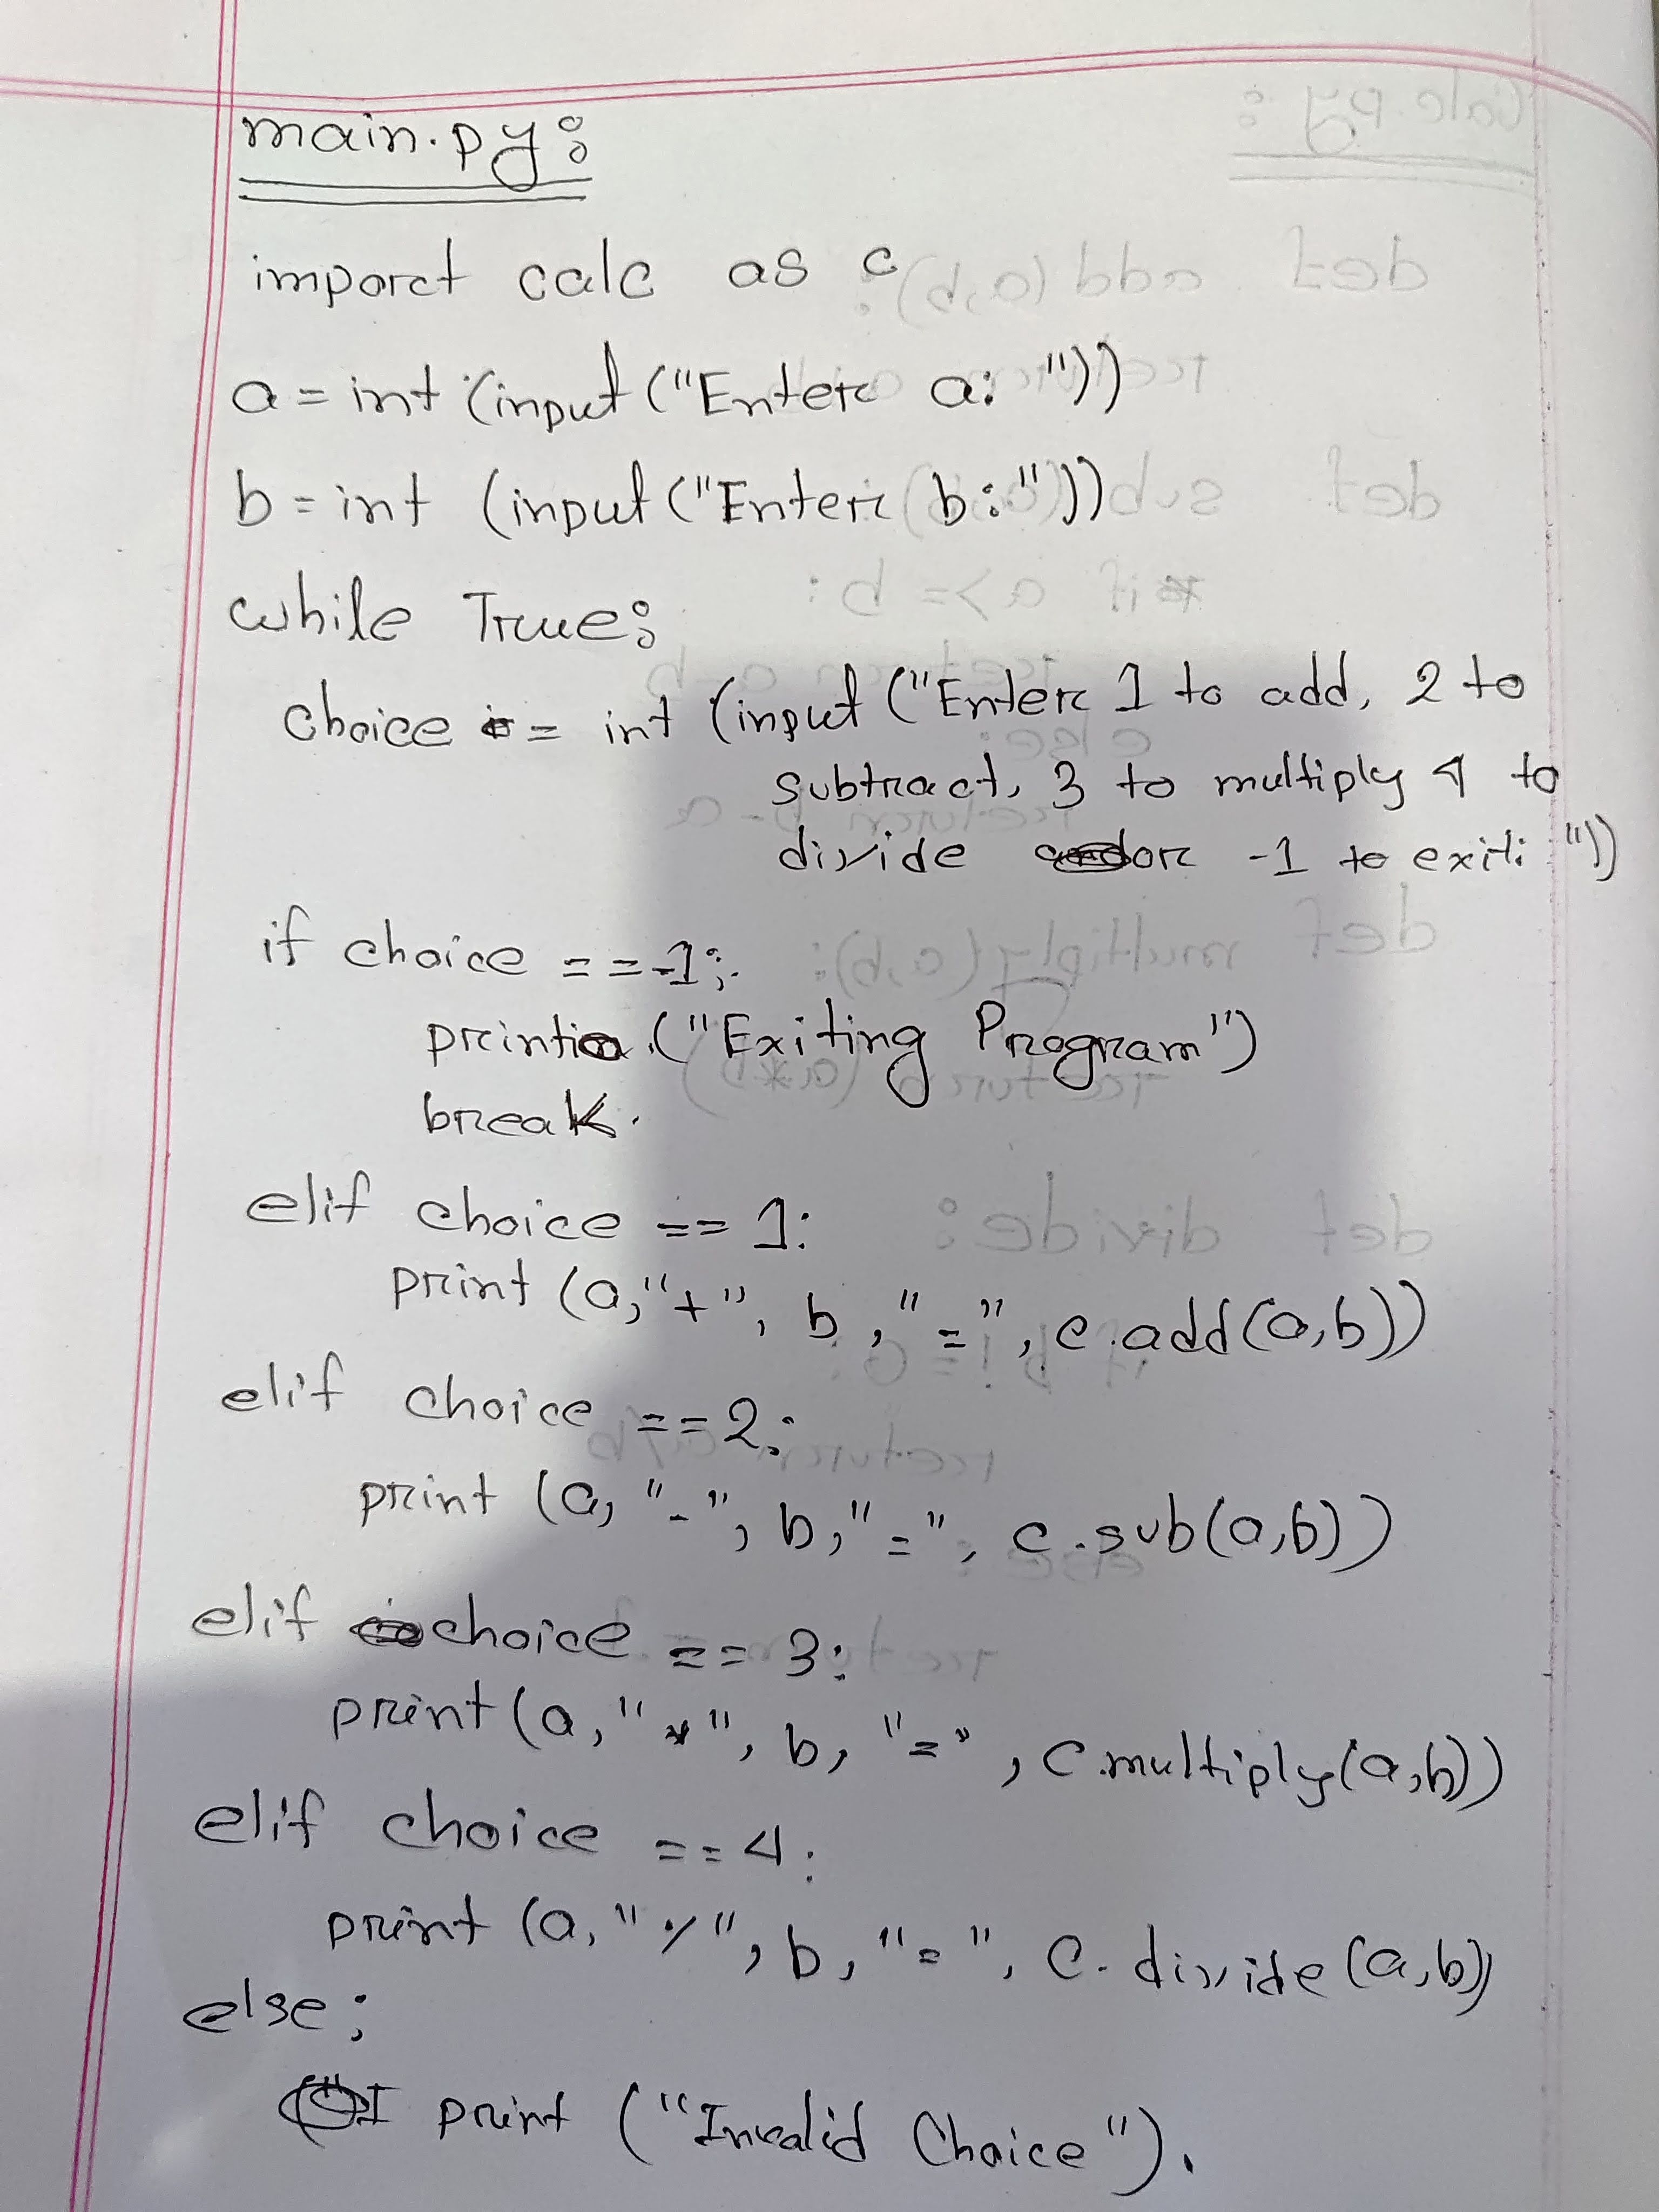 main.py:
import calc as c
a = int (input ("Enter a: "))
b = int (input ("Enter b:"))
while True:
choice = int (input ("Enter 1 to add, 2 to
subtract, 3 to multiply 4 to
divide or -1 to exit: "))
if choice == -1:
print ("Exiting Program")
break.
elif choice == 1:
print (a, "+", b, "=", c.add(a,b))
elif choice == 2:
print (a, "-", b, "=", c.sub(a,b))
elif choice == 3:
print (a, "*", b, "=", c.multiply(a,b))
elif choice == 4:
print (a, "/", b, "=", c.divide (a,b))
else:
print ("Invalid Choice").